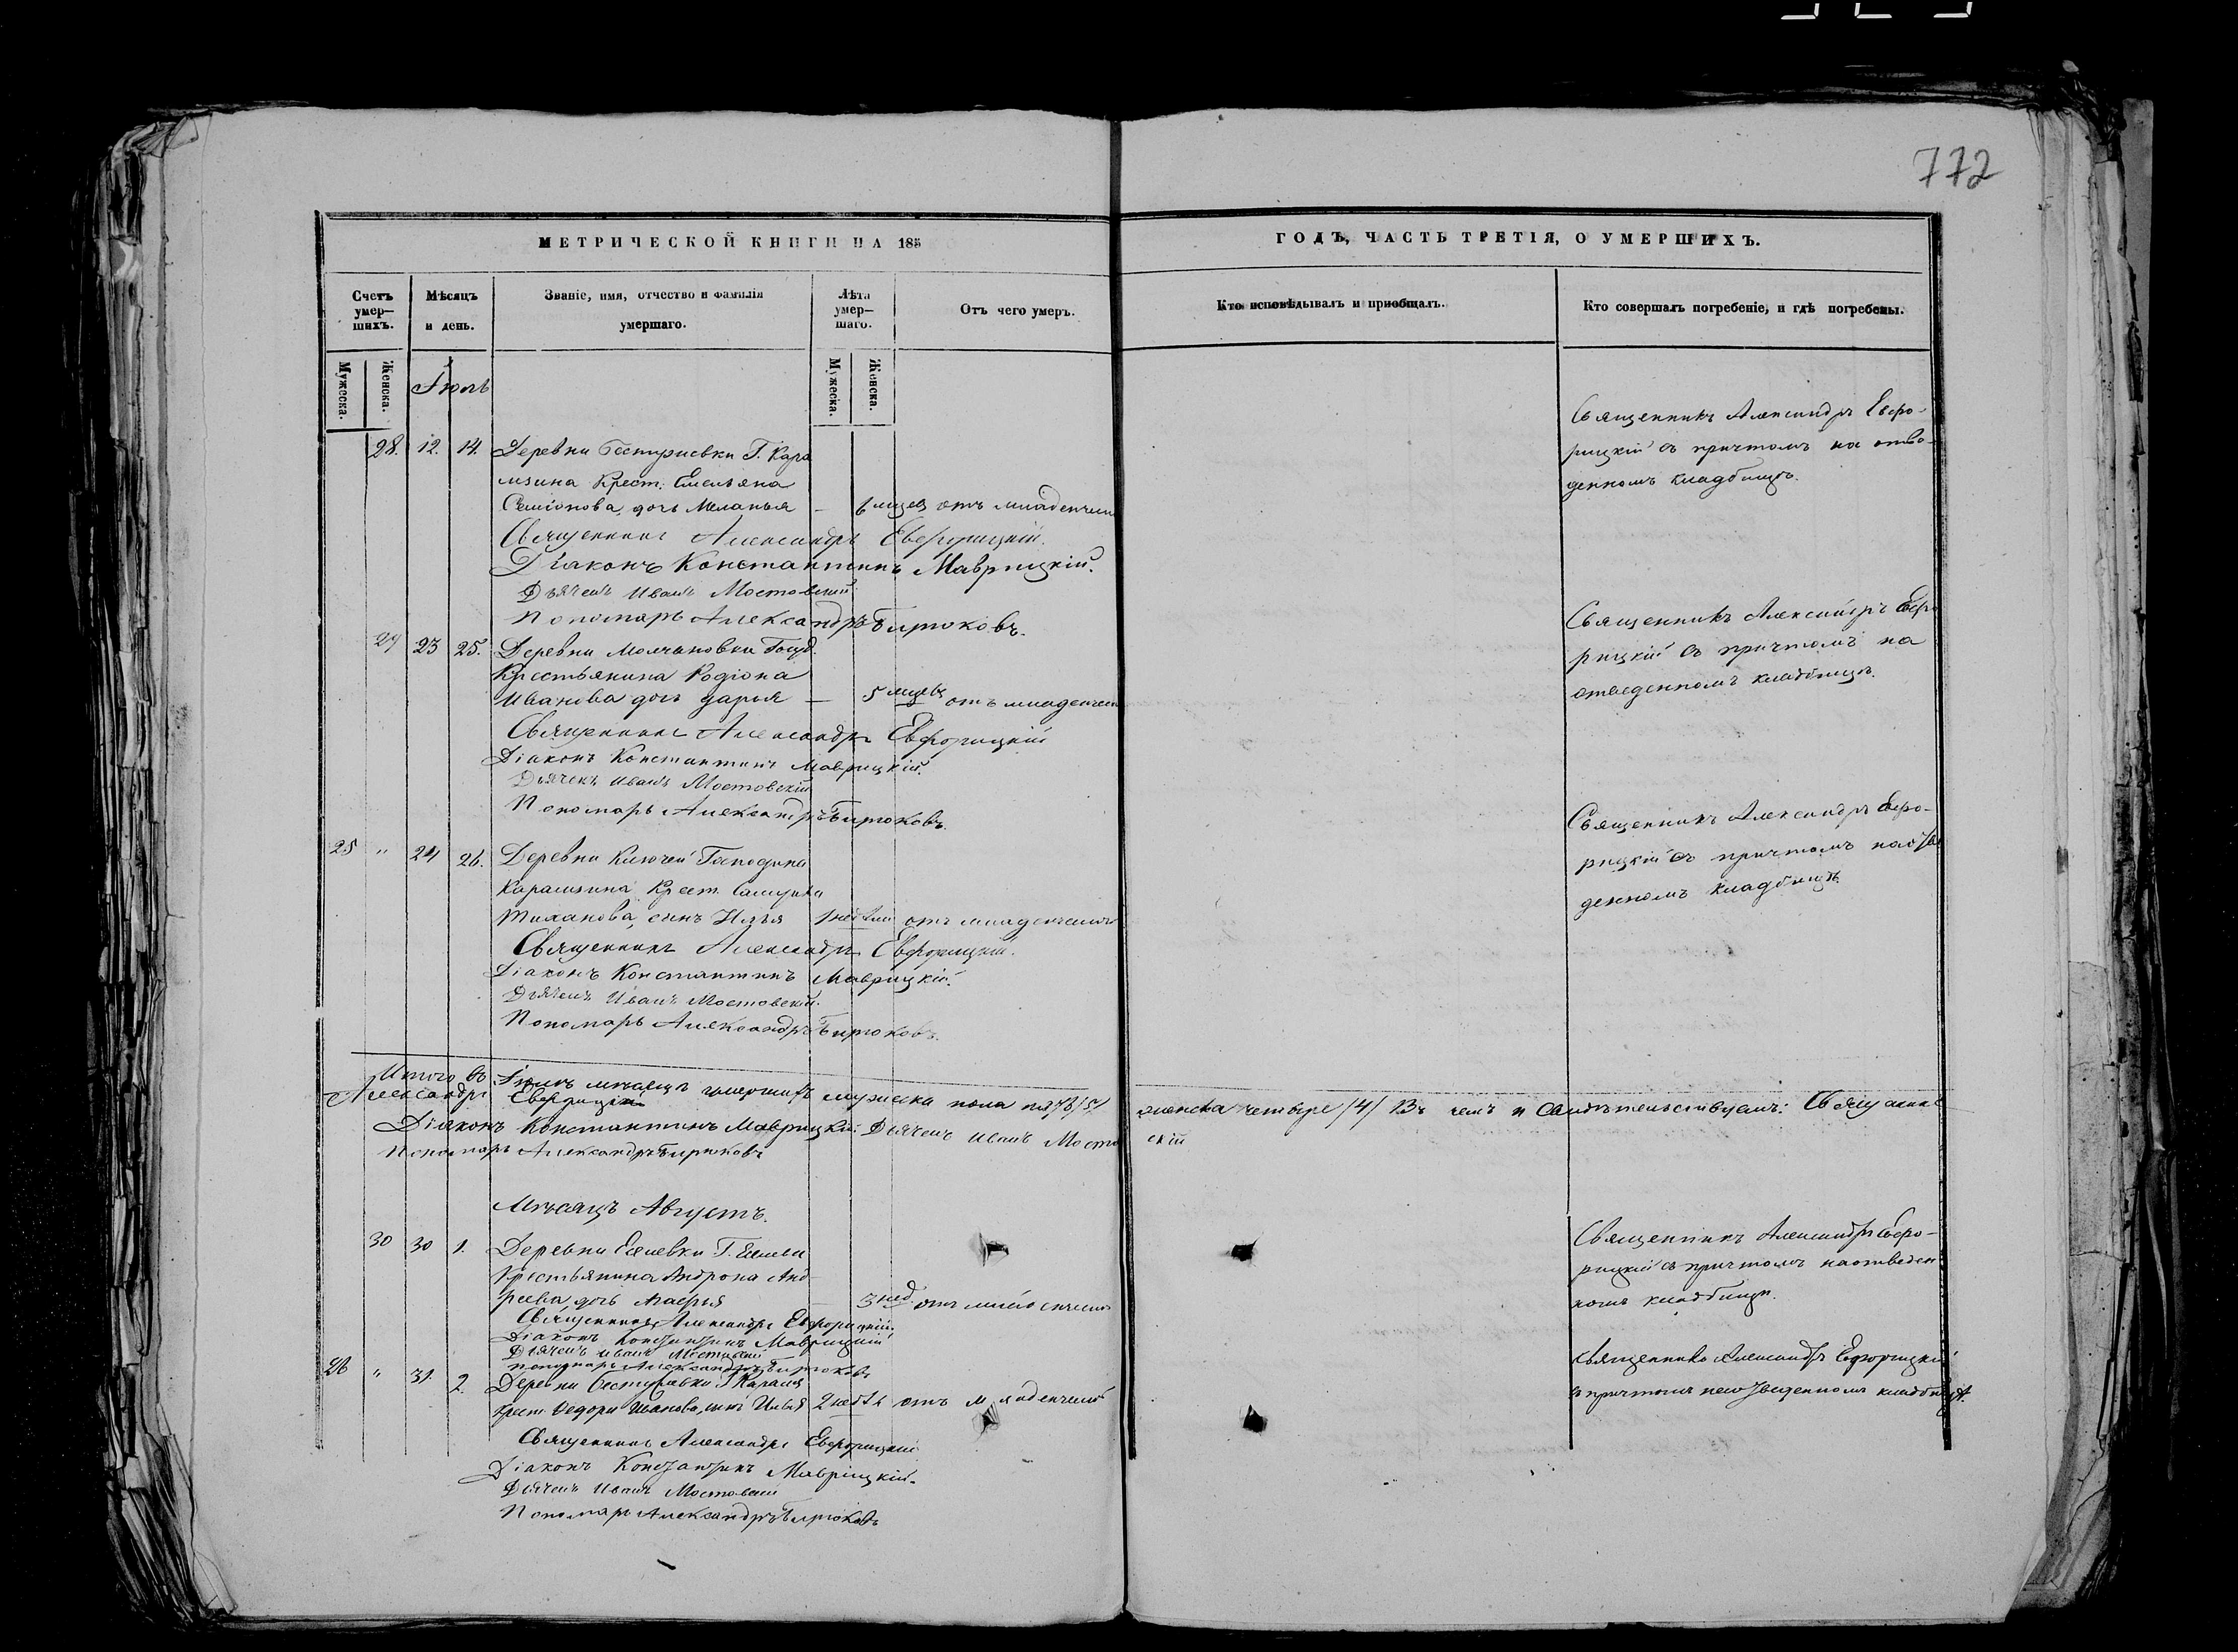 772
МЕТРИЧЕСКОЙ КНИГИ НА 185
ГОДЪ, ЧАСТЬ ТРЕТІЯ, О УМЕРШИХЪ.
Счетъ умер-шихъ.
Мѣсяцъ и день.
Званіе, имя, отчество и фамилія умершаго.
Лѣта умер-шаго.
Отъ чего умеръ.
Кто исповѣдывалъ и пріобщалъ.
Кто совершалъ погребеніе, и гдѣ погребены.
Мужеска.
Женска.
Мужеска.
Женска.
Іюль
28. 12. 14. Деревни Бестужевки Г. Кара
мзина Крест. Емельяна
Семіонова дочь Меланья — 6 мцев отъ младенческ
Священникъ Александръ Евфорицкій.
Діаконъ Константинъ Маврицкій.
Дьячекъ Иванъ Мостовскій
Пономарь Александръ Бирюковъ.
Священникъ Александръ Евфо-
рицкій съ причтомъ на отве-
денномъ кладбищѣ.
29 23 25. Деревни Молчановки Госуд.
Крестьянина Родіона
Иванова дочь Дарья — 5 мцевъ отъ младенческ
Священникъ Александръ Евфорицкій
Діаконъ Константинъ Маврицкій.
Дьячекъ Иванъ Мостовскій
Пономарь Александръ Бирюковъ.
Священникъ Александръ Евфо
рицкій съ причтомъ на
отведенномъ кладбищѣ.
25 " 24 26. Деревни Ключей Господина
Карамзина Крест.
сынъ Илья отъ младенческой
Священникъ Александръ Евфорицкій.
Діаконъ Константинъ Маврицкій.
Дьячекъ Иванъ Мостовскій.
Пономарь Александръ Бирюковъ.
Священникъ Александръ Евфо-
рицкій съ причтомъ на отве
денномъ кладбищѣ
Итого въ Іюлѣ мѣсяцѣ умершихъ мужеска пола пять /5/ женска четыре /4/ Въ чемъ и свидѣтельствуемъ: Священникъ
Александръ Евфорицкій
Діаконъ Константинъ Маврицкій. Дьячекъ Иванъ Мостовскій
Пономарь Александръ Бирюковъ
Мѣсяцъ Августъ.
30 30 1. Деревни Г.
Крестьянина Андрона Анд-
реева дочь 3 нед. отъ младенческой
Священникъ Александръ Евфорицкій.
Діаконъ Константинъ Маврицкій
Дьячекъ Иванъ Мостовскій
Пономарь Александръ Бирюковъ
Священникъ Александръ Евфо-
рицкій съ причтомъ на отведен
номъ кладбищѣ.
26 " 31 2. Деревни Бестужевки Г. Карамз
Крест. Ѳедора Иванова, сынъ Илья 2 недѣль отъ младенческой
Священникъ Александръ Евфорицкій
Діаконъ Константинъ Маврицкій.
Дьячекъ Иванъ Мостовскій
Пономарь Александръ Бирюковъ
Священникъ Александръ Евфорицкій
съ причтомъ на отведенномъ кладбищѣ.